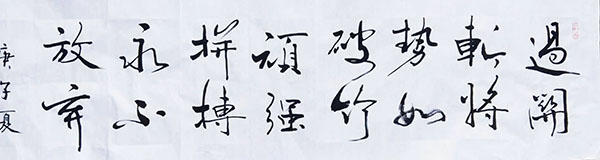 過關
斬將
勢如
破竹
頑强
拼搏
永不
放弃
庚子夏